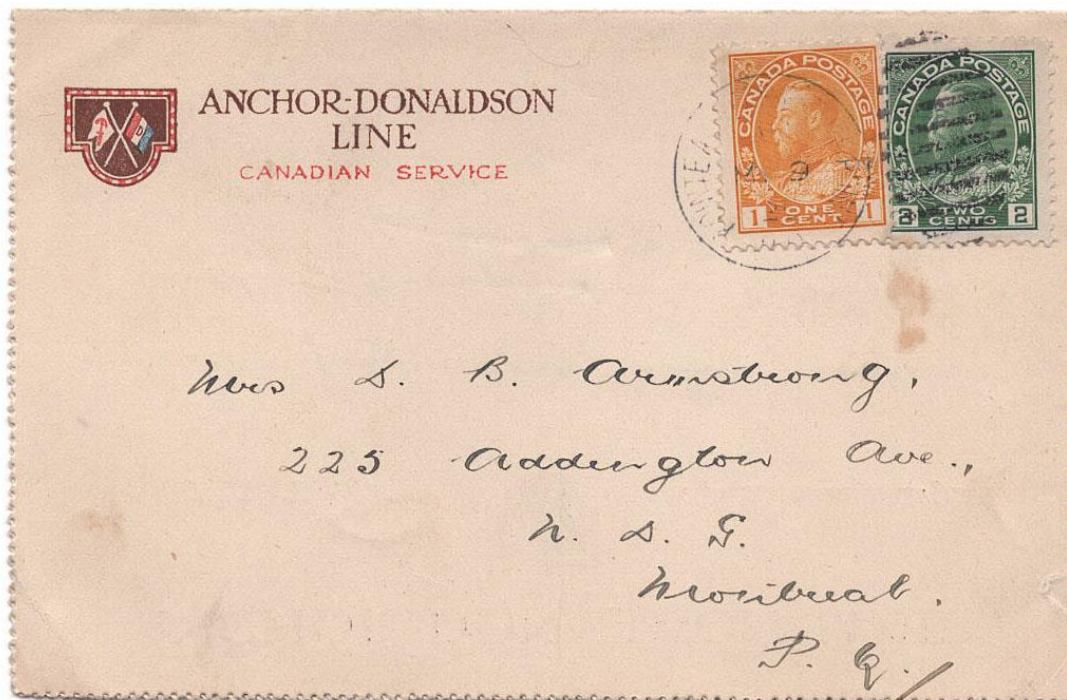 ANCHOR-DONALDSON
LINE
CANADIAN SERVICE
CANADA POSTAGE
1 ONE CENT 1
CANADA POSTAGE
2 TWO CENTS 2
Mrs D. B. Armstrong,
225 Addington Ave.,
N. D. G.
Montreal.
P. Q.